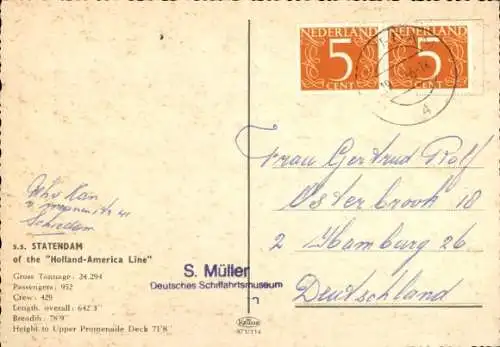 NEDERLAND NEDERLAND
5 5
CENT CENT
4
Frau Gertrud Rolf
Osterbrook 18
2 Hamburg 26
Deutschland
Schiedam
s.s. STATENDAM
of the "Holland-America Line"
Gross Tonnage: 24.294
Passengers: 952
Crew: 429
Length overall: 642'3"
Breadth: 78'9"
Height to Upper Promenade Deck 71'8"
S. Müller
Deutsches Schiffahrtsmuseum